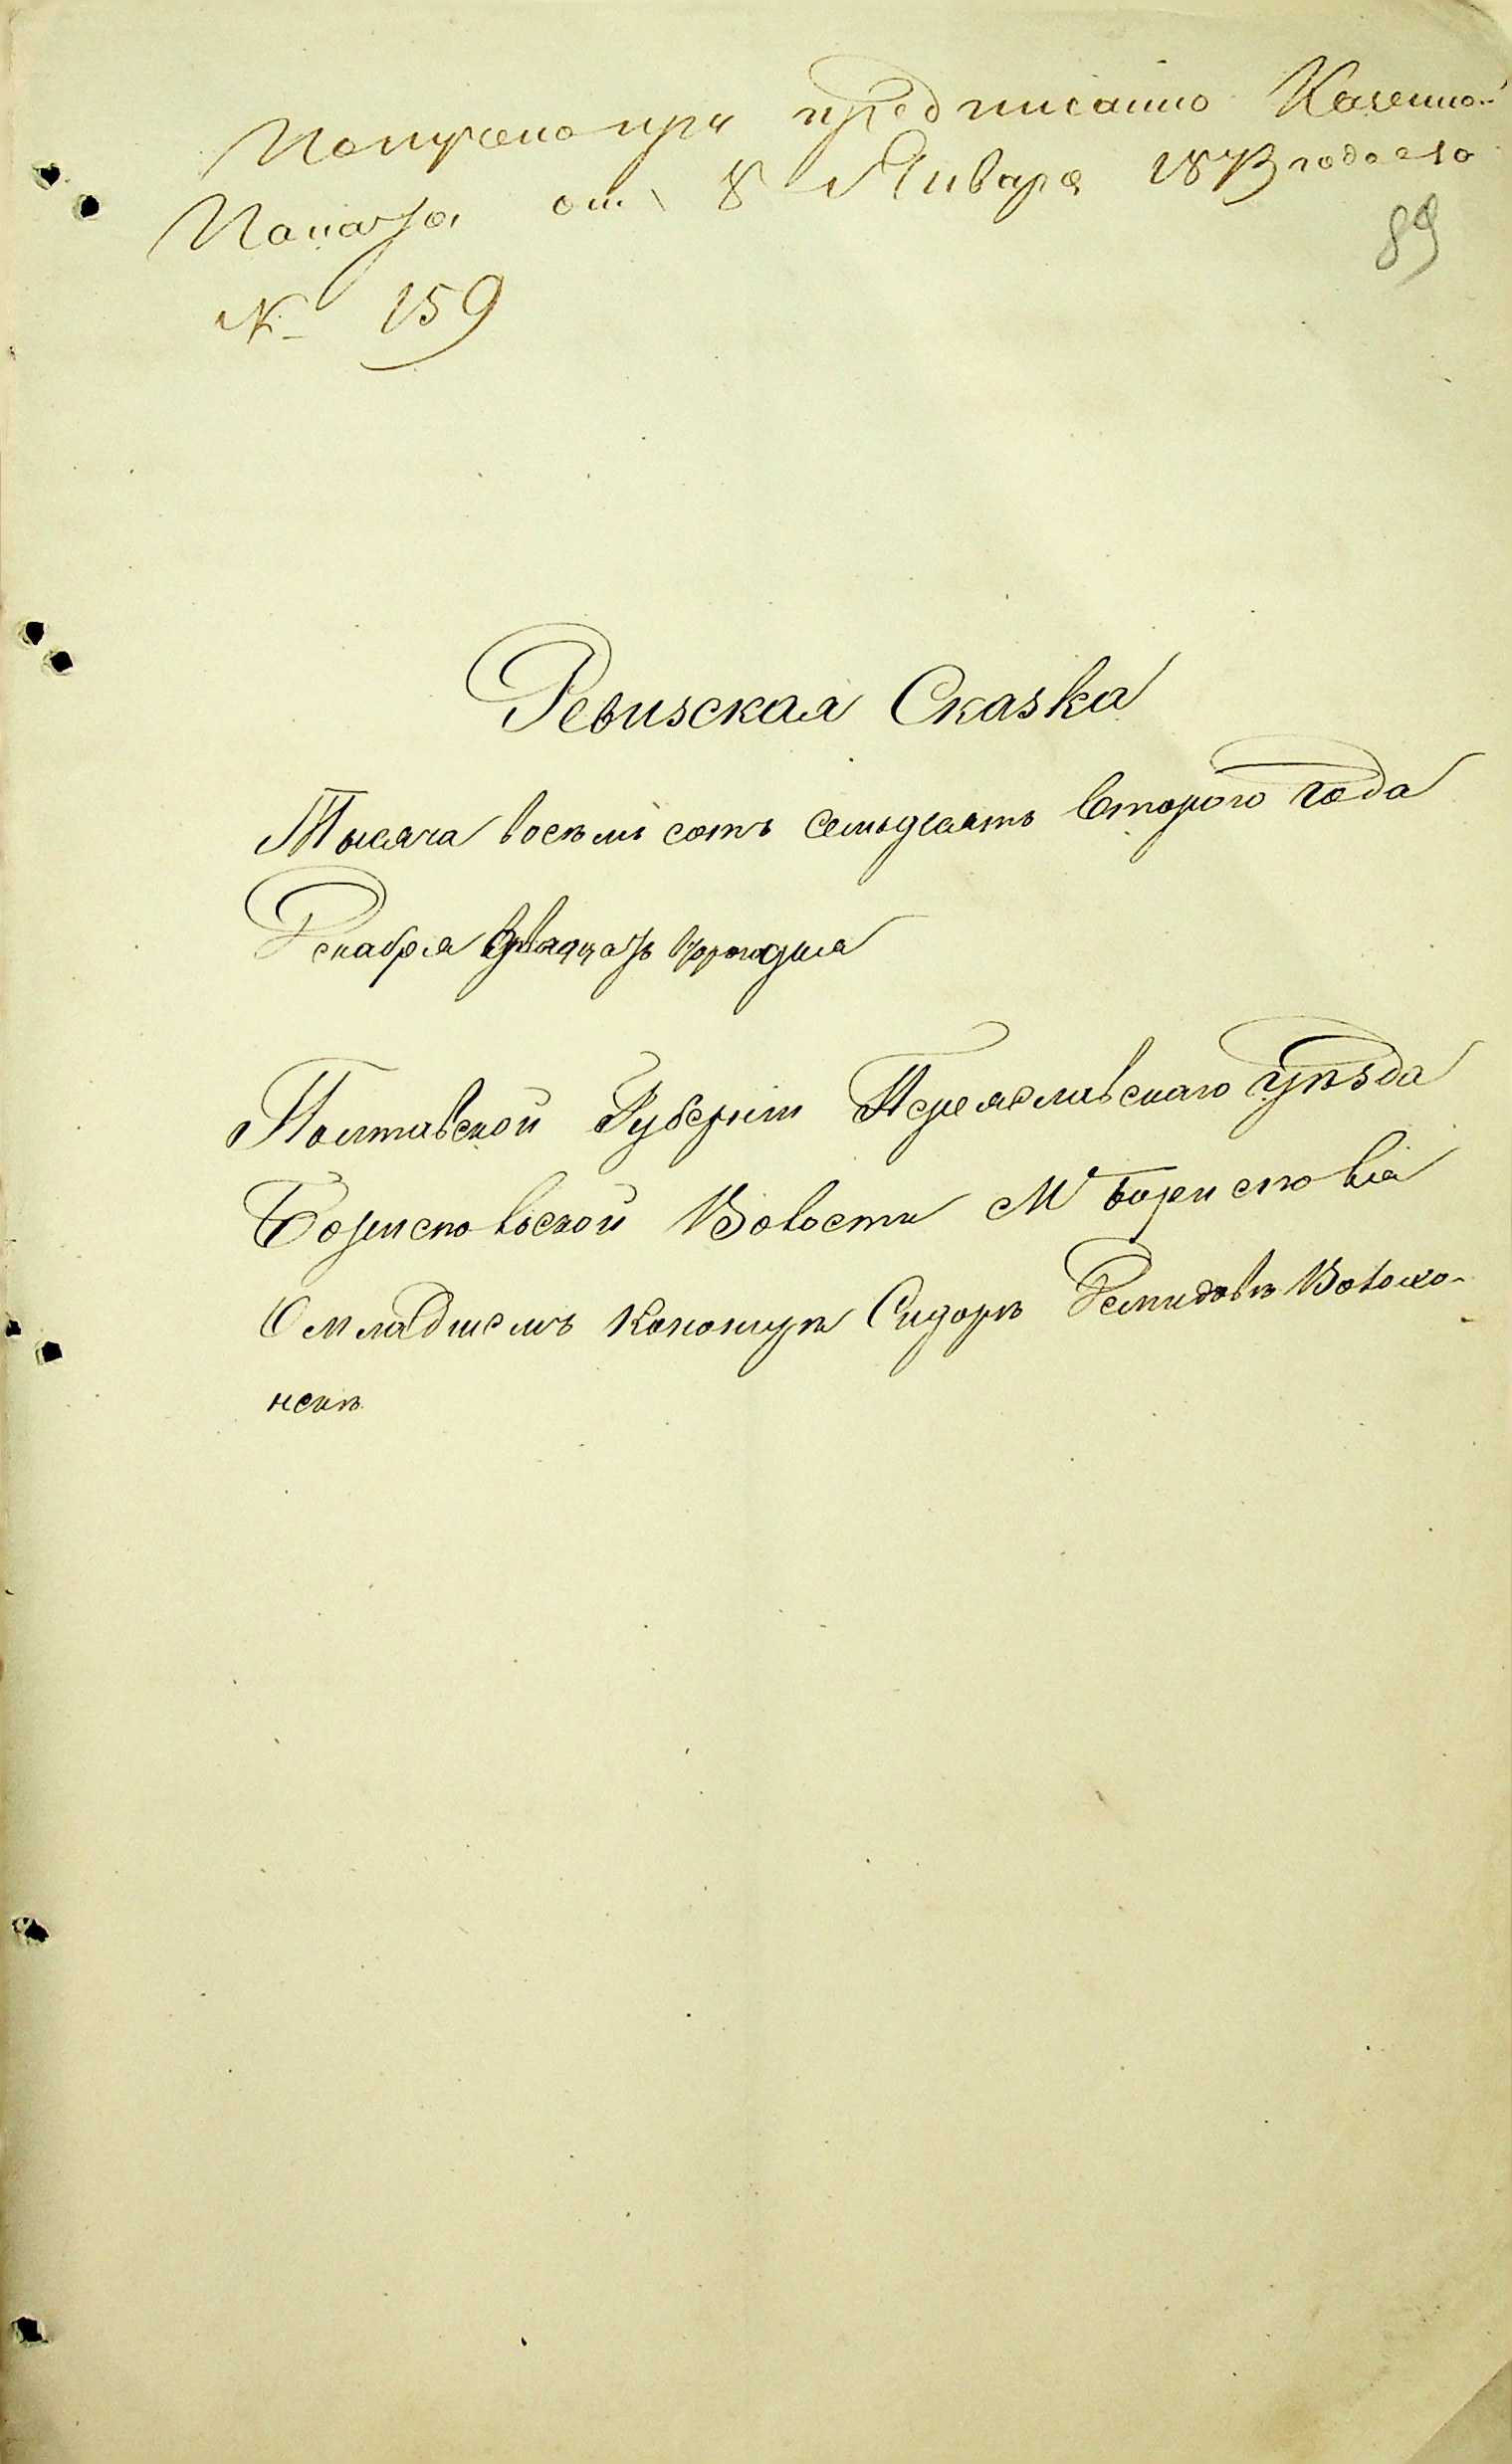 Получено при предписании Казенной
Палаты от 8 Января 1873 года за
№ 159
89
Ревизская Сказка
Тысяча восемь сотъ семьдесятъ второго года
Декабря двадцать втораго дня
Полтавской Губерніи Переяславскаго уѣзда
Бориспольской Волости М. Борисполя
О младшемъ канонирѣ Сидорѣ Демидовѣ Волоко-
нскѣ